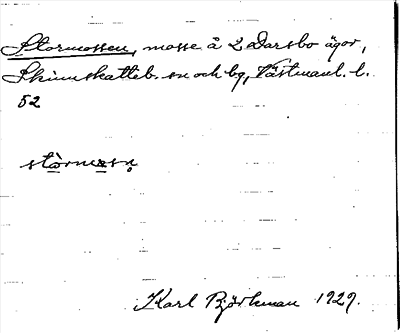 Stormossen, mosse å 2 Darsbo ägor,
Skinnskatteb. sn och bg, Västmanl. l.
52
Karl Björkman 1929.